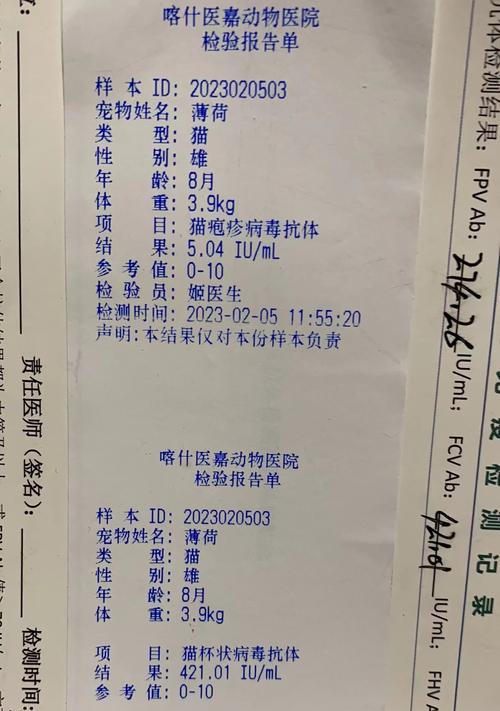 喀什医嘉动物医院
检验报告单
样 本 ID: 2023020503
宠物姓名: 薄荷
类 型: 猫
性 别: 雄
年 龄: 8月
体 重: 3.9kg
项 目: 猫疱疹病毒抗体
结 果: 5.04 IU/mL
参 考 值: 0-10
检 验 员: 姬医生
检测时间: 2023-02-05 11:55:20
声明:本结果仅对本份样本负责
喀什医嘉动物医院
检验报告单
样 本 ID: 2023020503
宠物姓名: 薄荷
类 型: 猫
性 别: 雄
年 龄: 8月
体 重: 3.9kg
项 目: 猫杯状病毒抗体
结 果: 421.01 IU/mL
参 考 值: 0-10
责任医师（签名）:
检测时间:
体检测结果: FPV Ab: 274.26 IU/mL; FCV Ab: 421.01 IU/mL; FHV A
疫检测记录